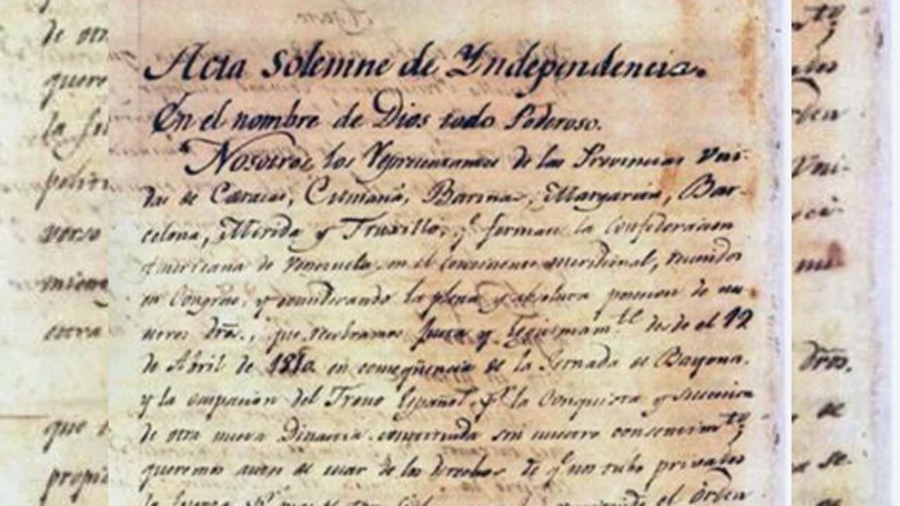 Acta Solemne de Yndependencia.
En el nombre de Dios todo Poderoso.
Nosotros los Representantes de las Provincias Uni-
das de Caracas, Cumaná, Barinas, Margarita, Bar-
celona, Mérida y Truxillo, q.e forman la Confederacion
Americana de Venezuela en el Continente meridional, reunidos
en Congreso, y considerando la plena y absoluta posesion de nu
estros dros., que recobramos justa y legitimam.te desde el 19
de Abril de 1810 en conseqüencia de la Jornada de Bayona.
y la ocupacion del Trono Español, p.r la Conquista y sucesion
de otra nueva Dinastia constituida sin nuestro consentim.to,
queremos antes de usar de los derechos de q.e nos tubo privados
la fuerza el orden
de otra
quere
la fu
politi
verso
otra
que
propi
dros.